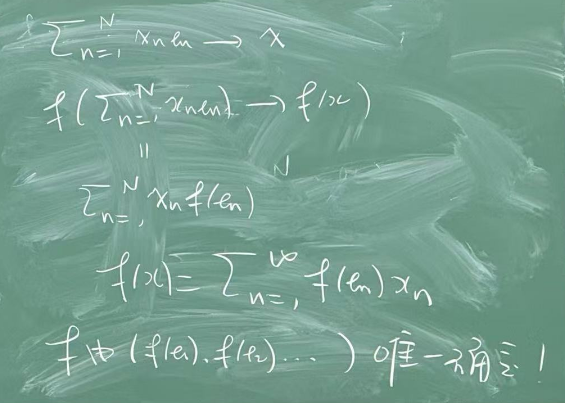 ∑_{n=1}^{N} x_n e_n → x
f(∑_{n=1}^{N} x_n e_n) → f(x)
=
∑_{n=1}^{N} x_n f(e_n)
N
f(x) = ∑_{n=1}^{∞} f(e_n) x_n
f 由 (f(e_1), f(e_2) ... ) 唯一确定!